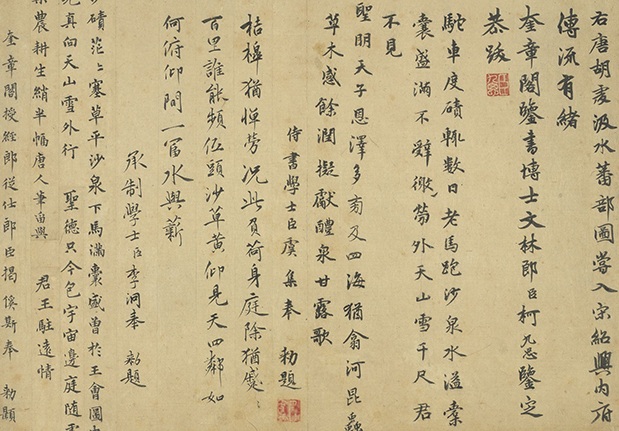 右唐胡虔汲水蕃部圖嘗入宋紹興內府
傳流有緒
奎章閣鑒書博士文林郎臣柯九思鑒定
恭跋
駝車度磧輒數日老馬跑沙泉水溢橐
囊盛滿不辭微勞外天山雪千尺君
不見
聖明天子恩澤多育及四海猶翕河昆蟲
草木感餘潤擬獻醴泉甘露歌
侍書學士臣虞集奉 勑題
桔槔猶憚勞況此負荷身庭除猶蹙〻
百里誰能頻低頭沙草黃仰見天四鄰如
何俯仰間一富水與薪
承制學士臣李泂奉 勑題
沙磧茫〻塞草平沙泉下馬滿囊盛曾於王會圖中
見真向天山雪外行 聖德只今包宇宙邊庭隨
樂農耕生綃半幅唐人筆留與 君王駐遠情
奎章閣授經郎從仕郎臣揭傒斯奉 勑題